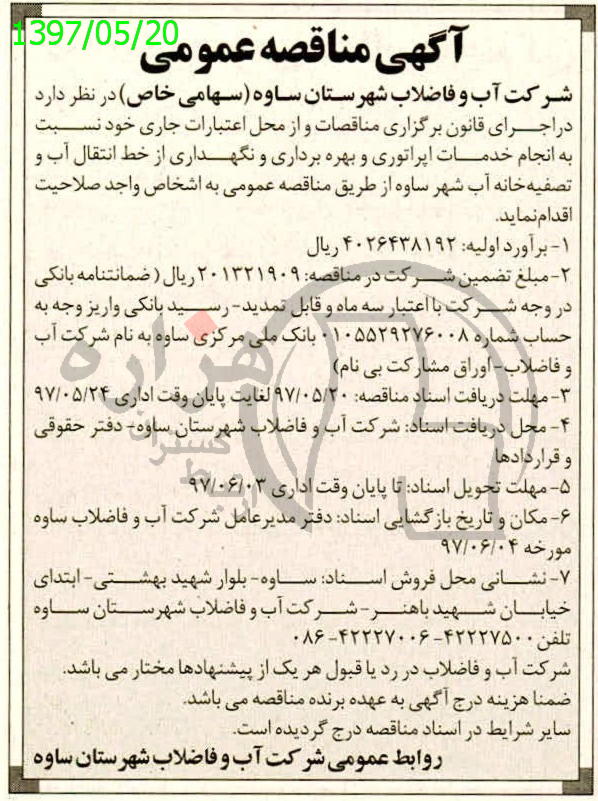 1397/05/20
آگهی مناقصه عمومی
شرکت آب و فاضلاب شهرستان ساوه (سهامی خاص) در نظر دارد
در اجرای قانون برگزاری مناقصات و از محل اعتبارات جاری خود نسبت
به انجام خدمات اپراتوری و بهره برداری و نگهداری از خط انتقال آب و
تصفیه‌خانه آب شهر ساوه از طریق مناقصه عمومی به اشخاص واجد صلاحیت
اقدام نماید.
۱- برآورد اولیه: ۴۰۲۶۴۳۸۱۹۲ ریال
۲- مبلغ تضمین شرکت در مناقصه: ۲۰۱۳۲۱۹۰۹ ریال ( ضمانتنامه بانکی
در وجه شرکت با اعتبار سه ماه و قابل تمدید- رسید بانکی واریز وجه به
حساب شماره ۰۱۰۵۵۲۹۲۷۶۰۰۸ بانک ملی مرکزی ساوه به نام شرکت آب
و فاضلاب- اوراق مشارکت بی نام)
۳- مهلت دریافت اسناد مناقصه: ۹۷/۰۵/۲۰ لغایت پایان وقت اداری ۹۷/۰۵/۲۴
۴- محل دریافت اسناد: شرکت آب و فاضلاب شهرستان ساوه- دفتر حقوقی
و قراردادها
۵- مهلت تحویل اسناد: تا پایان وقت اداری ۹۷/۰۶/۰۳
۶- مکان و تاریخ بازگشایی اسناد: دفتر مدیرعامل شرکت آب و فاضلاب ساوه
مورخه ۹۷/۰۶/۰۴
۷- نشانی محل فروش اسناد: ساوه- بلوار شهید بهشتی- ابتدای
خیابان شهید باهنر- شرکت آب و فاضلاب شهرستان ساوه
تلفن ۴۲۲۲۷۵۰۰- ۴۲۲۲۷۰۰۶- ۰۸۶
شرکت آب و فاضلاب در رد یا قبول هر یک از پیشنهادها مختار می باشد.
ضمنا هزینه درج آگهی به عهده برنده مناقصه می باشد.
سایر شرایط در اسناد مناقصه درج گردیده است.
روابط عمومی شرکت آب و فاضلاب شهرستان ساوه
هزاره